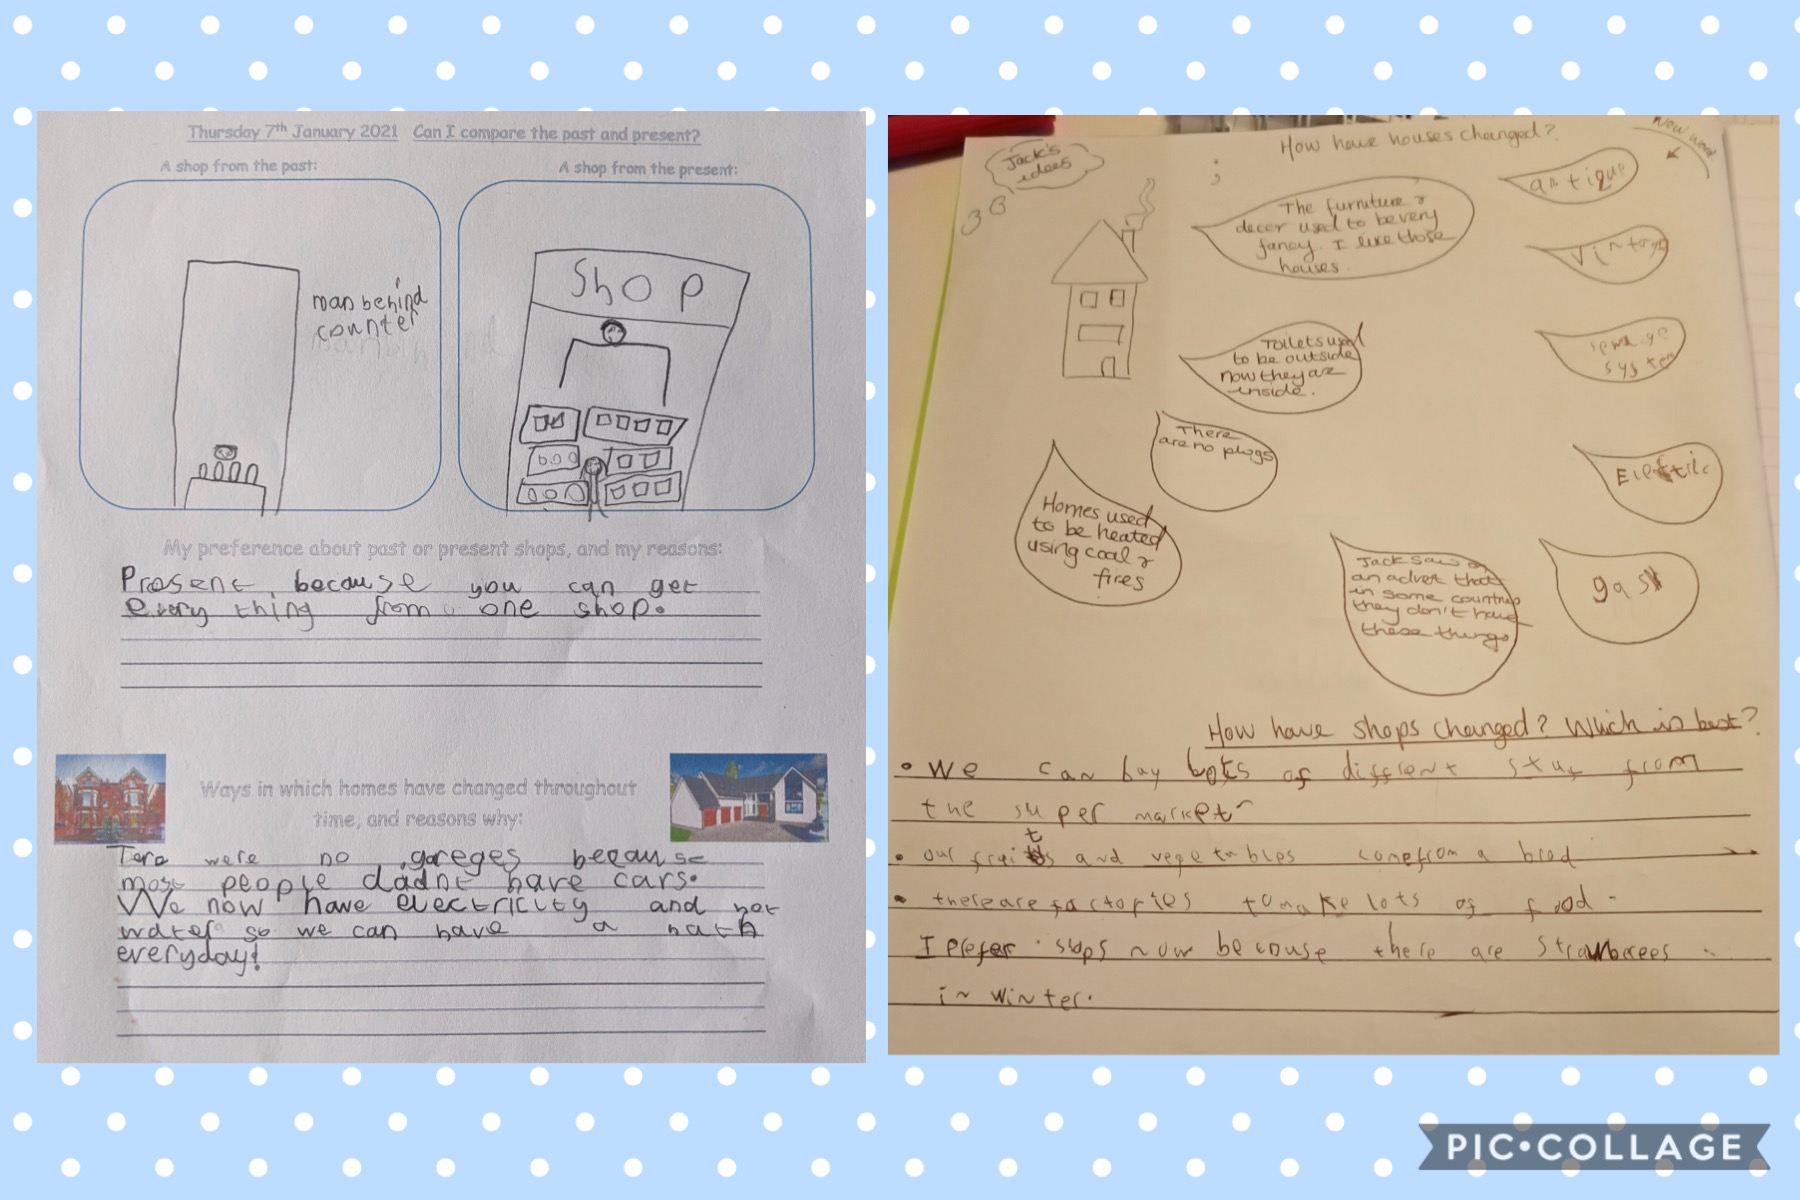 Thursday 7th January 2021 Can I compare the past and present?
A shop from the past:
A shop from the present:
man behind
counter
Shop
My preference about past or present shops, and my reasons:
Present because you can get
every thing from one shop.
Ways in which homes have changed throughout
time, and reasons why:
Tere were no gareges because
most people dadnt have cars.
We now have electricity and hot
water so we can have a bath
everyday!
Jack's
idees
How have houses changed?
New word
The furniture &
decor used to be very
fancy. I like those
houses.
Toilets used
to be outside
now they are
inside.
There
are no plugs
Homes used
to be heated
using coal &
fires
Jack saw on
an advert that
in some countries
they don't have
these things
antique
vintage
sewage
system
Electric
gas
How have shops changed? Which is best?
• We can buy lots of diffrent stuf from
the super market
• our fruits and vegetables come from abrod
• there are factories to make lots of food.
I prefer shops now because there are strawberees
in winter.
PIC•COLLAGE